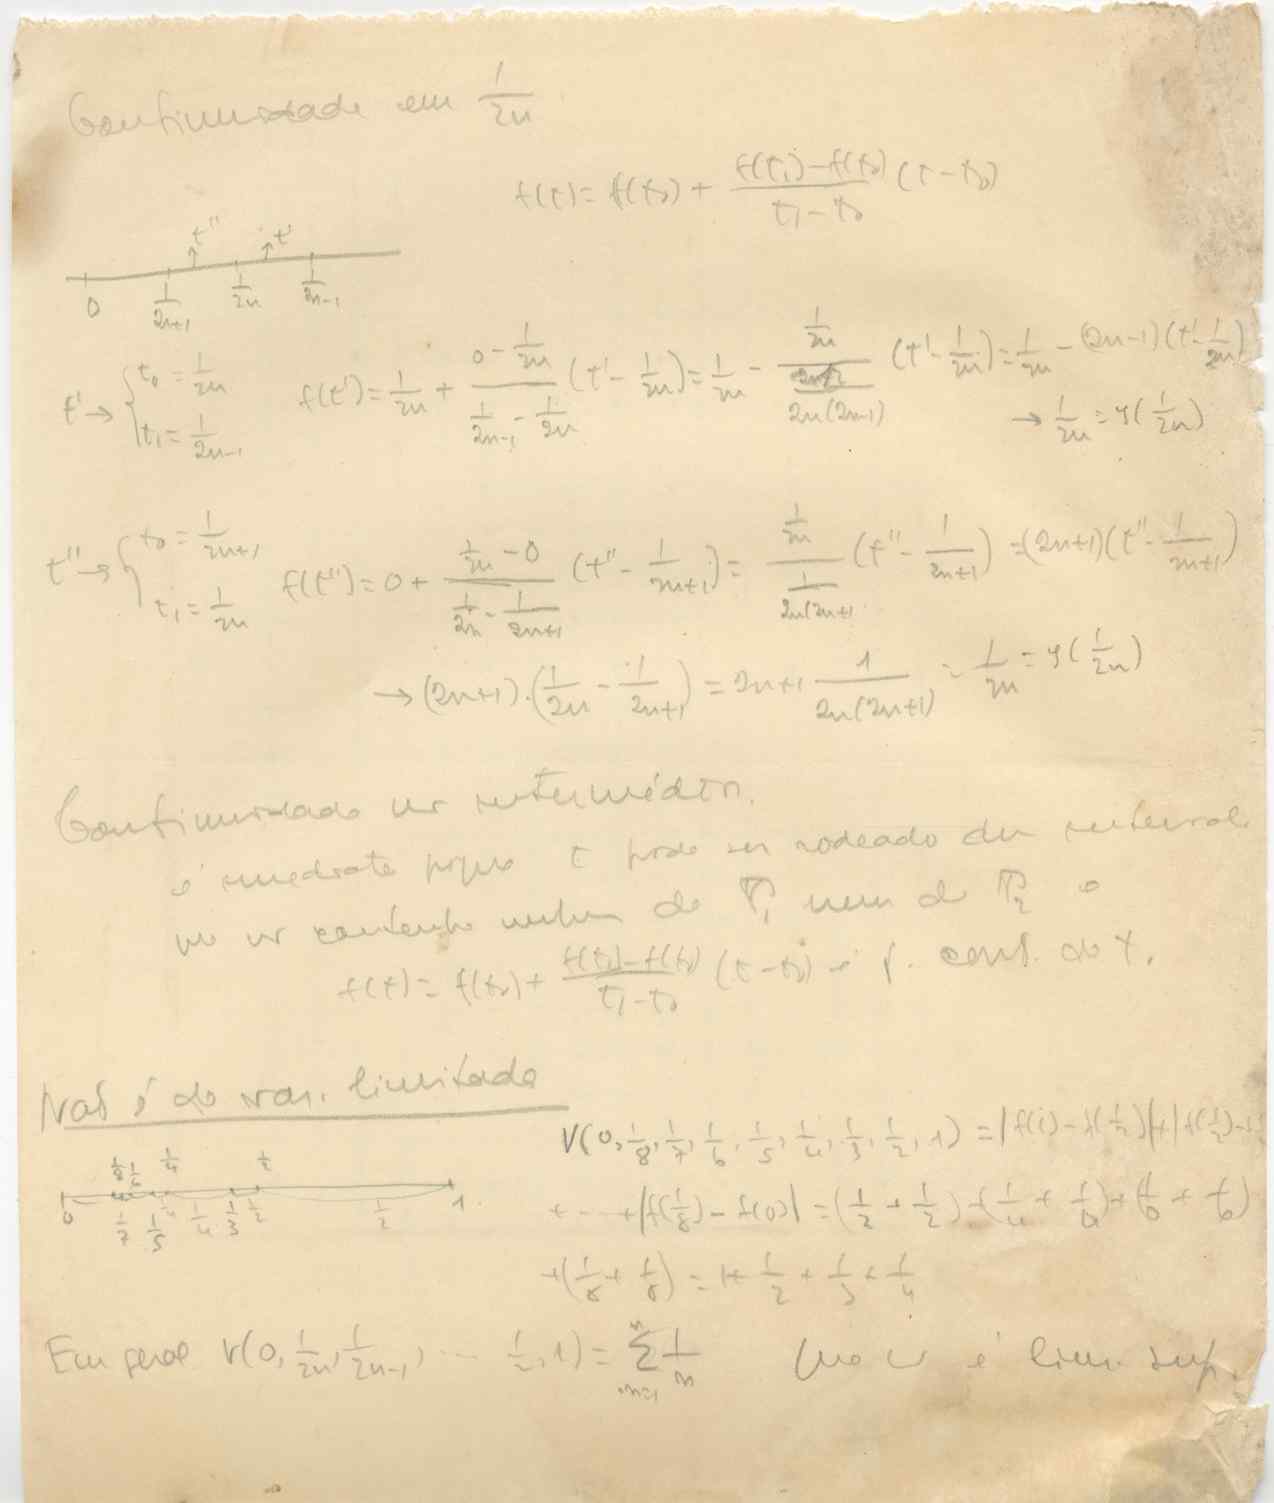 Continuidade em 1/2n
f(t) = f(t₀) + (f(t₁) − f(t₀))/(t₁ − t₀) (t − t₀)
t'' t'
0 1/2n+1 1/2n 1/2n−1
t' → { t₀ = 1/2n t₁ = 1/2n−1 f(t') = 1/2n + (0 − 1/2n)/(1/2n−1 − 1/2n) (t' − 1/2n) = 1/2n − (1/2n)/(1/2n(2n−1)) (t' − 1/2n) = 1/2n − (2n−1)(t' − 1/2n)
→ 1/2n = φ(1/2n)
t'' → { t₀ = 1/2n+1 t₁ = 1/2n f(t'') = 0 + (1/2n − 0)/(1/2n − 1/2n+1) (t'' − 1/2n+1) = (1/2n)/(1/2n(2n+1)) (t'' − 1/2n+1) = (2n+1)(t'' − 1/2n+1)
→ (2n+1).(1/2n − 1/2n+1) = 2n+1 1/2n(2n+1) = 1/2n = φ(1/2n)
Continuidade intermédio.
é imediata porque t pode ser rodeado dum interval
que não contenha de P₁ nem de P₂ e
f(t) = f(t₀) + (f(t₁) − f(t₀))/(t₁ − t₀) (t − t₀) é f. cont. de t.
Não é de var. limitada
1/8 1/6 1/4 1/2
0 1/7 1/5 1/4 1/4 1/3 1/2 1/2 1
V(0, 1/8, 1/7, 1/6, 1/5, 1/4, 1/3, 1/2, 1) = |f(1) − f(1/2)| + |f(1/2) −
+ ··· + |f(1/8) − f(0)| = (1/2 + 1/2) + (1/4 + 1/4) + (1/6 + 1/6)
+ (1/8 + 1/8) = 1 + 1/2 + 1/3 + 1/4
Em geral V(0, 1/2n, 1/2n−1, ··· 1/2, 1) = Σ 1/n n n=1 que é lim. sup.